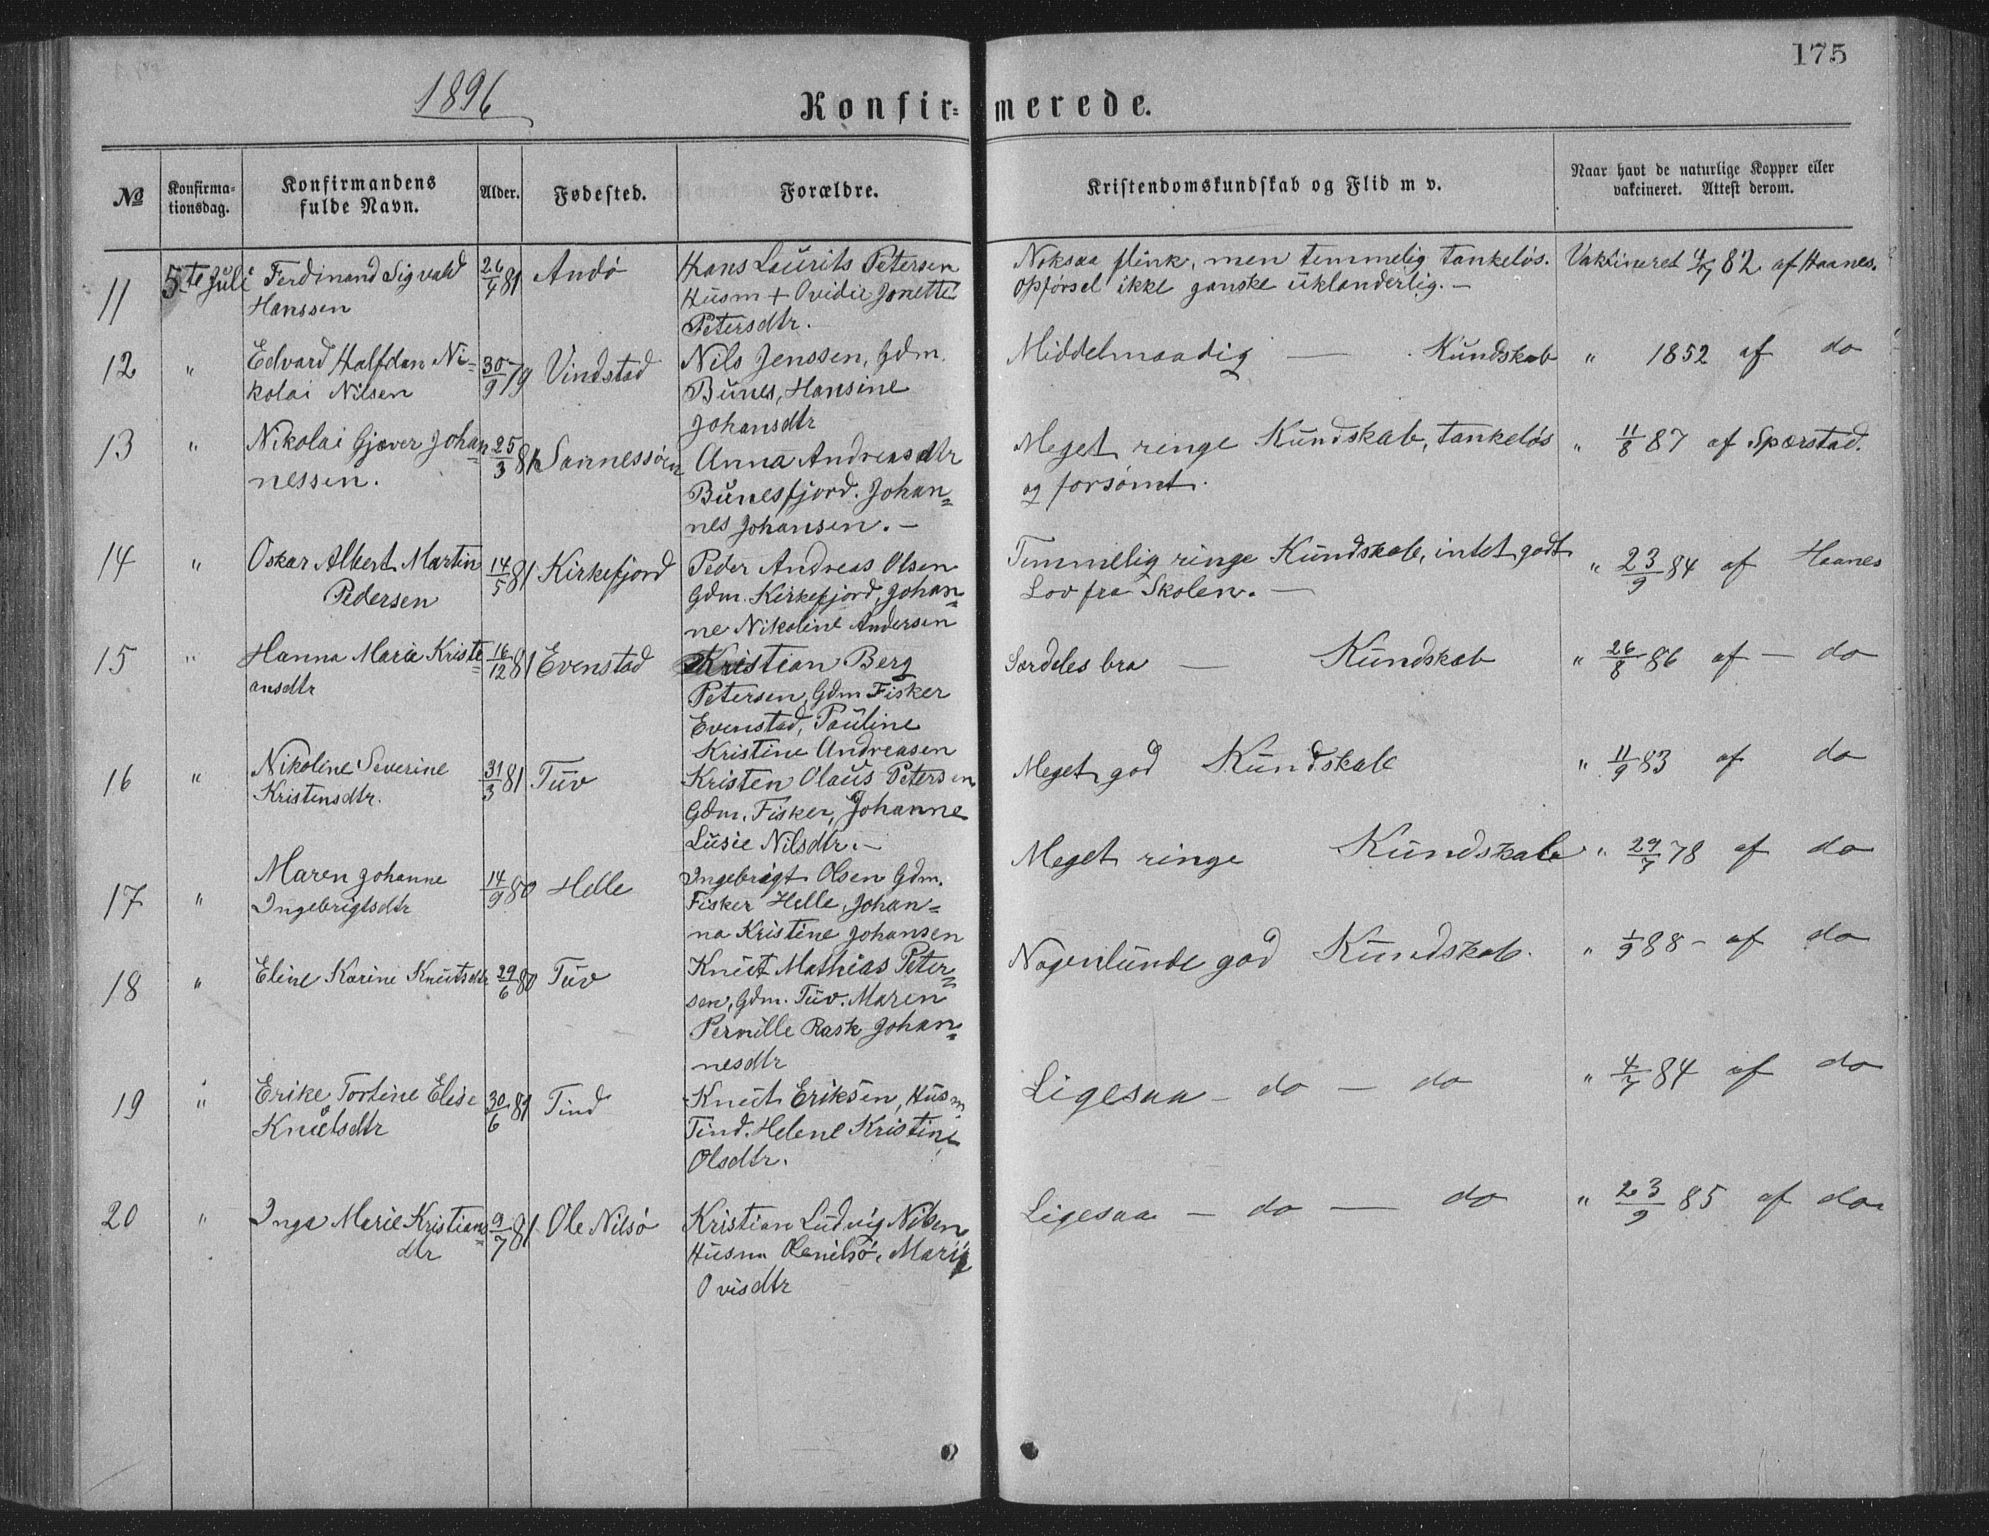 175
1896
Konfir= merede.
№
Konfirma-
tionsdag.
Konfirmandens
fulde Navn.
Alder.
Fødested.
Forældre.
Kristendomskundskab og Flid m v.
Naar havt de naturlige Kopper eller
vakcineret. Attest derom.
11 5te Juli Ferdinand Sigvald 26/4 81 Andö Hans Laurits Petersen Noksaa flink, men temmelig tankelös. Vakkineret 82 af Haanes.
Hanssen Husm + Ovidie Jonette Opförsel ikke ganske uklanderlig. —
Petersdtr.
12 " Edvard Halfdan Ni- 30/9 79 Vindstad Nils Jenssen, Gdm. Middelmaadig — Kundskab " 1852 af do
kolai Nilsen Bunes, Hansine
Johansdtr
13 " Nikolai Gjæver Johan 25/3 81 Sannessöen Anna Andreasdtr Meget ringe Kundskab, tankelös " 11/8 87 af Spærstad.
nessen. Bunesfjord. Johan= og forsömt.
nes Johansen. —
14 " Oskar Albert Martin 14/5 81 Kirkefjord Peder Andreas Olsen Temmelig ringe Kundskab, intet godt " 23/9 84 af Haanes
Pedersen Gdm. Kirkefjord, Johan= Lov fra Skolen. —
ne Nikoline Andersen
15 " Hanna Marie Kristi= 16/12 81 Evenstad Kristian Berg Særdeles bra — Kundskab " 26/8 86 af — do
ansdtr Petersen, Gdm Fisker
Evenstad, Pauline
Kristine Andreasen
16 " Nikoline Severine 31/3 81 Tuv Kristen Olaus Petersen Meget god Kundskab " 11/9 83 af do
Kristensdtr. Gdm. Fisker, Johanne
Lusie Nilsdtr. —
17 " Maren Johanne 14/9 80 Helle Ingebrigt Olsen Gdm. Meget ringe Kundskab " 29/7 78 af do
Ingebrigtsdtr Fisker Helle, Johan=
na Kristine Johansen
18 " Eline Karine Knutsdtr 29/6 80 Tuv Knut Mathias Peter= Nogenlunde god Kundskab. " 1/9 88 - af do
sen, Gdm. Tuv. Maren
Pernille Rask Johan=
nesdtr
19 " Erike Tortine Elise 30/6 81 Tind Knut Eriksen, Husm Ligesaa - do — do " 4/7 84 af do
Knutsdtr Tind. Helene Kristine
Olsdtr.
20 " Inga Marie Kristians= 9/7 81 Ole Nilsö Kristian Ludvig Nilsen Ligesaa — do — do " 23/9 85 af do
dtr Husm Olenilsö, Marie
Ovisdtr